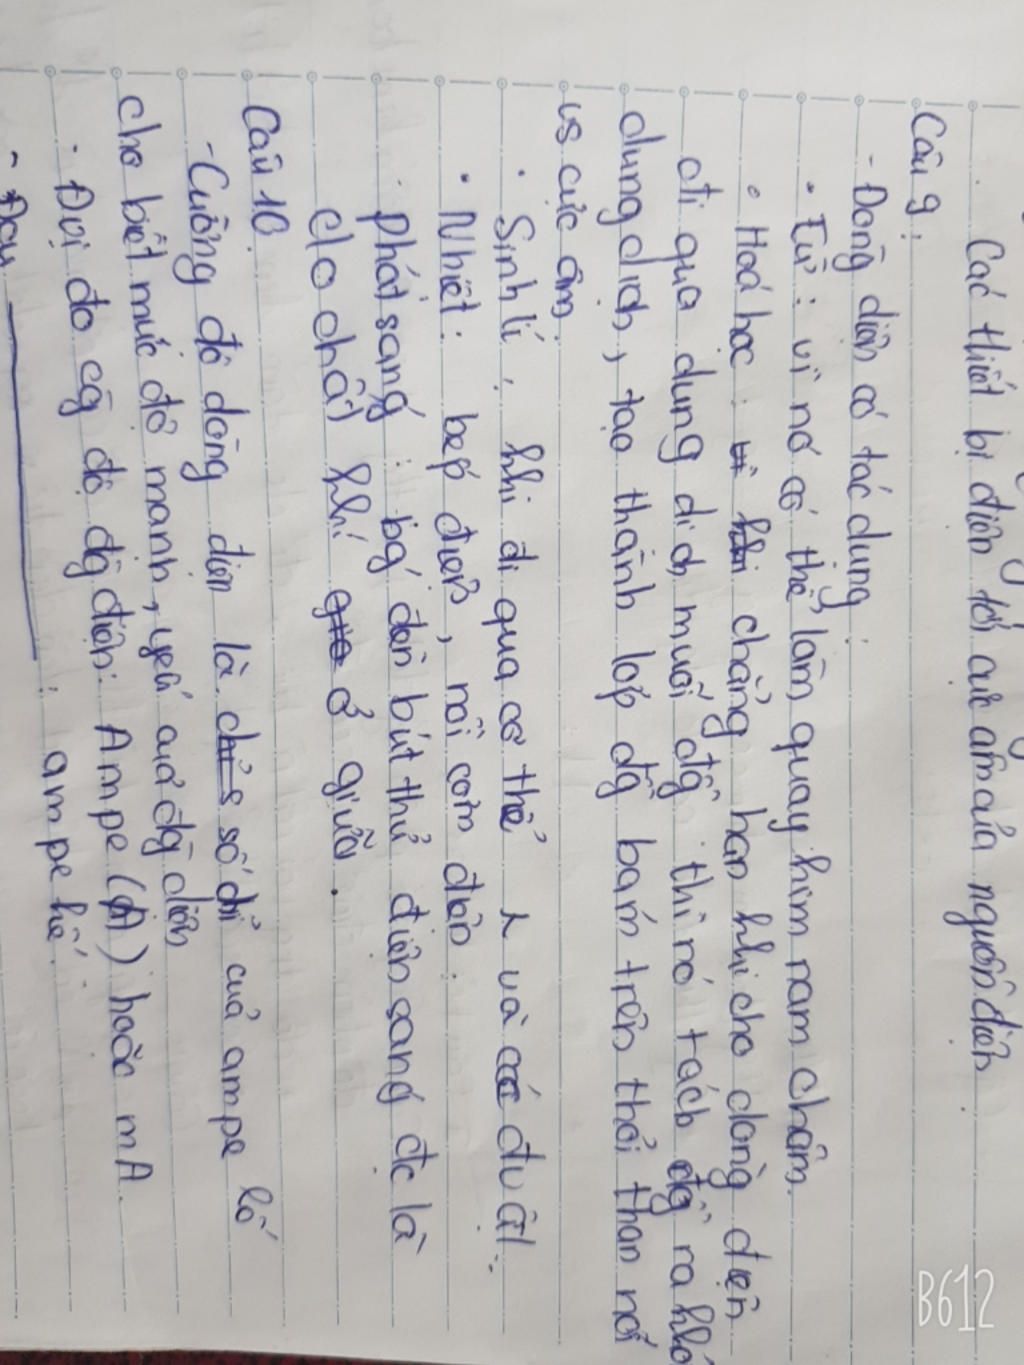 Các thiết bị điện tới cực âm của nguồn điện.
Câu 9:
- Dòng điện có tác dụng:
• Từ: vì nó có thể làm quay kim nam châm.
• Hoá học: vì khi chẳng hạn khi cho dòng điện
đi qua dung dịch muối đồg thì nó tách đồg ra khỏi
dung dịch, tạo thành lớp đồg bám trên thỏi than nối
vs cực âm.
• Sinh lí: khi đi qua cơ thể và các đv ...
• Nhiệt: bếp điện, nồi cơm điện.
• phát sáng: bóg đèn bút thử điện sáng đc là
do chất khí qua ở giữa.
Câu 10
- Cường độ dòng điện là chỉ s số chỉ của ampe kế
cho biết mức độ mạnh, yếu của dòg điện
• Đvị đo cđg độ dòg điện: Ampe (A) hoặc mA.
: ampe kế.
B612